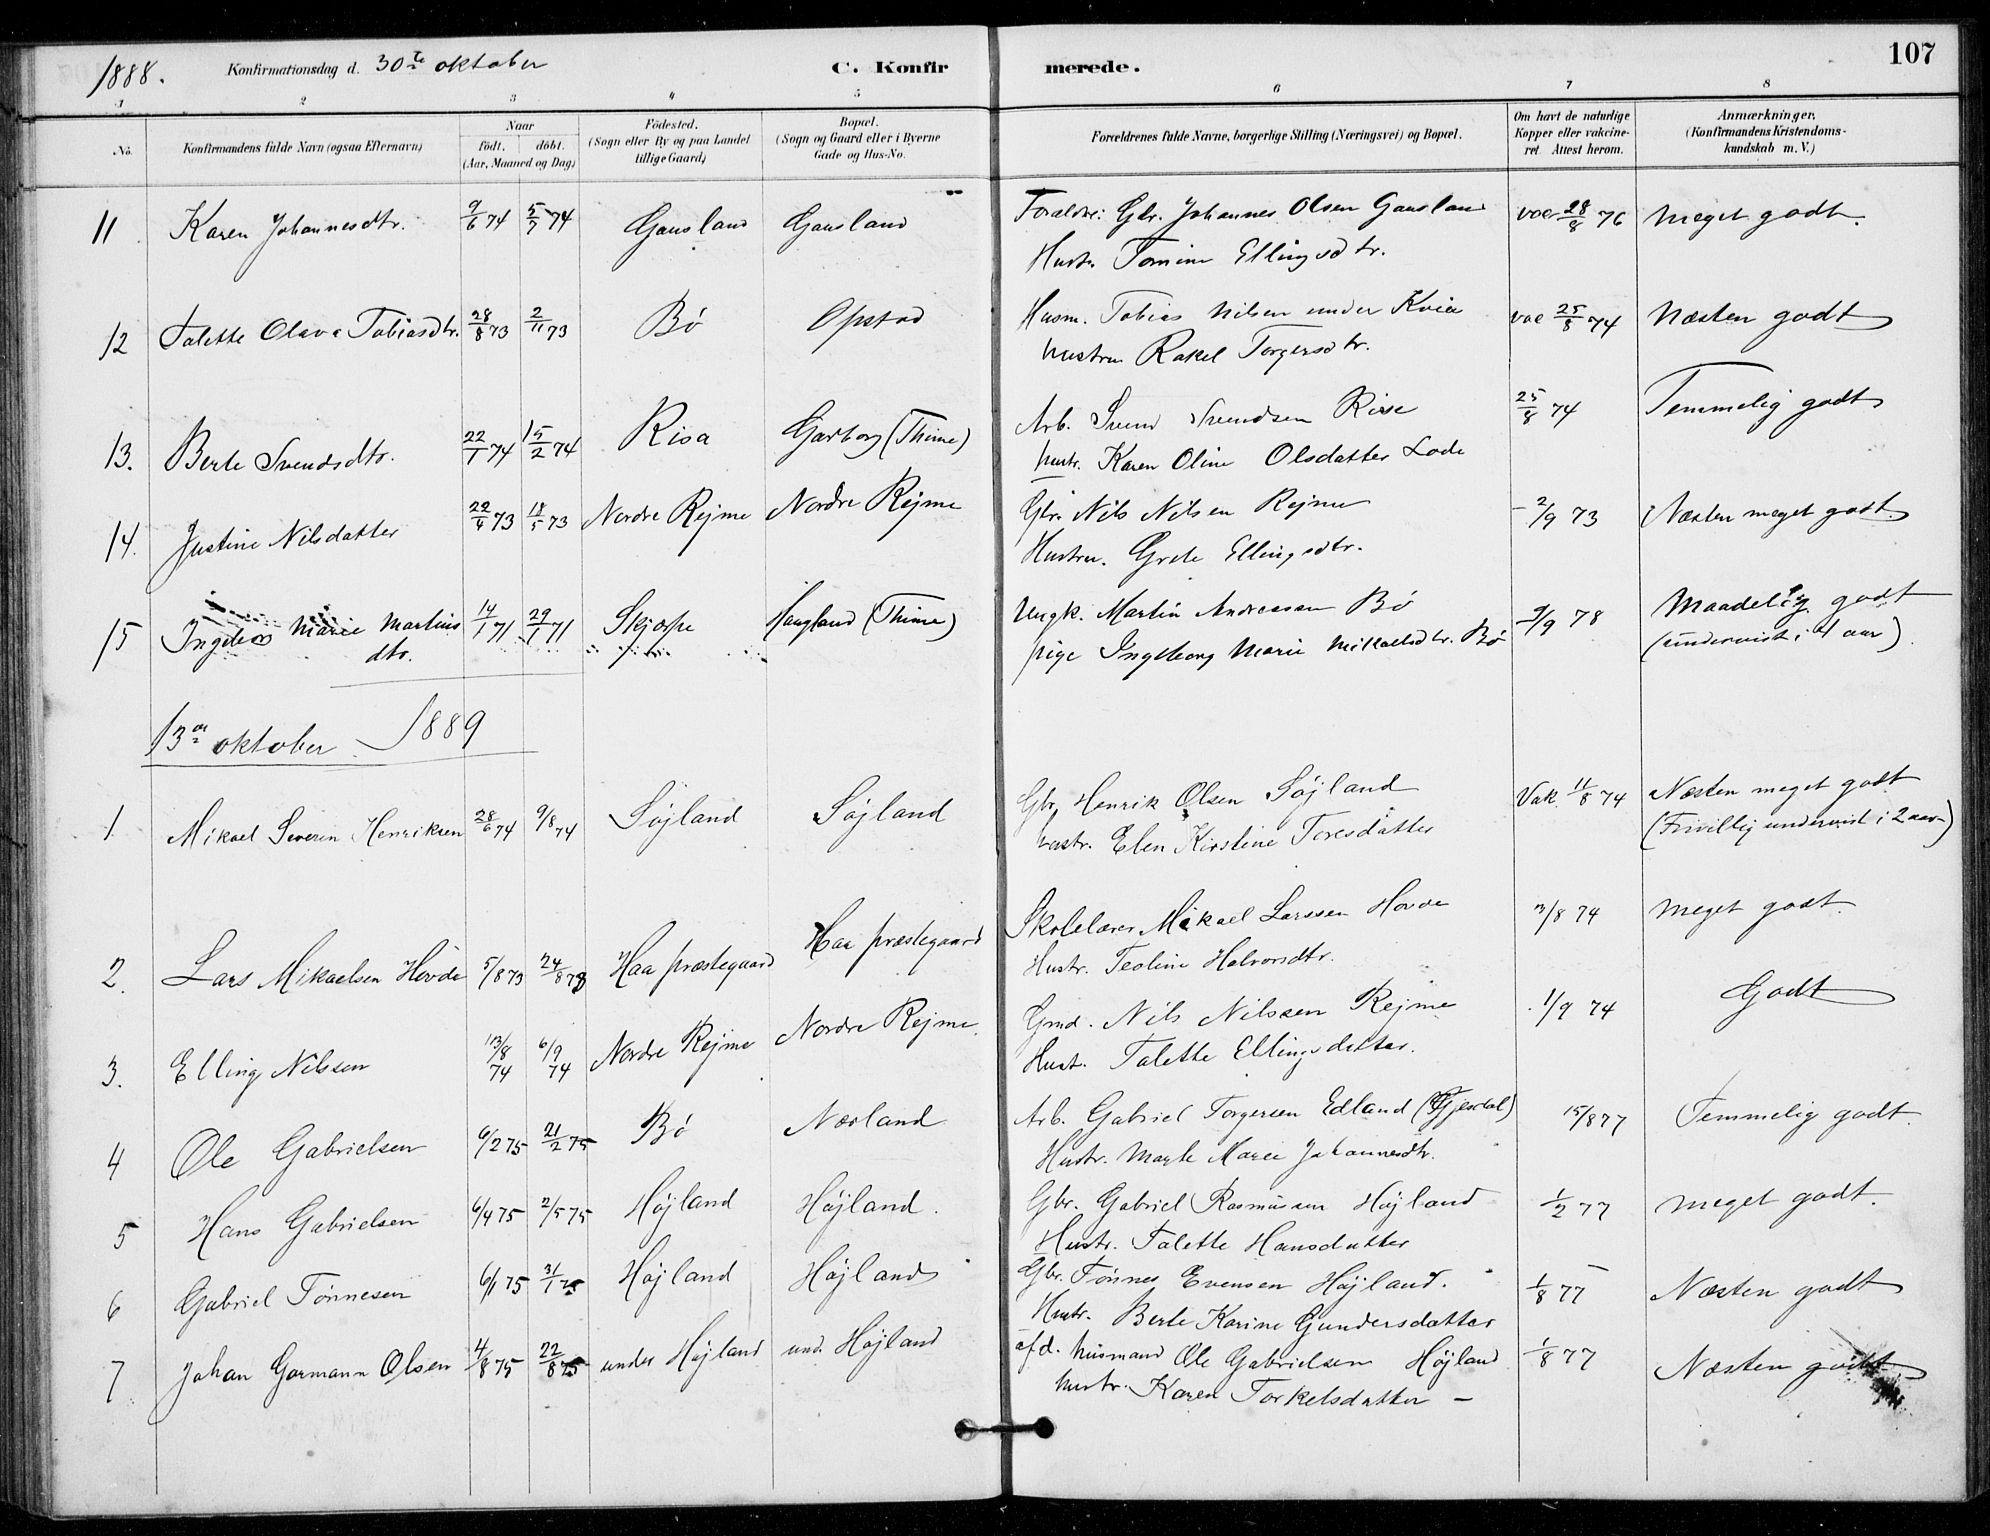 1888. Konfirmationsdag d. 30te oktober C. Konfirmerede. 107
1 2 3 4 5 6 7 8
No. Konfirmandens fulde Navn (ogsaa Efternavn) Naar födt. döbt. (Aar, Maaned og Dag) Födested. (Sogn eller By og paa Landet tillige Gaard) Bopæl. (Sogn og Gaard eller i Byerne Gade og Hus-No. Forældrenes fulde Navne, borgerlige Stilling (Næringsvei) og Bopæl. Om havt de naturlige Kopper eller vakcineret. Attest herom. Anmærkninger. (Konfirmandens Kristendomskundskab m. V.)
11 Karen Johannesdtr. 9/6 74 5/7 74 Gausland Gausland Forældre: Gbr. Johannes Olsen Gausland vac 28/8 76 Meget godt.
Hustr. Tomine Ellingsdtr.
12 Talette Olava Tobiasdtr. 28/8 73 2/11 73 Bö Opstad Husm. Tobias Nilsen under Kvia vac 25/8 74 Næsten godt
hustru Rakel Torgersdtr.
13. Berte Svendsdtr. 22/1 74 15/2 74 Risa Garborg (Thime) Arb. Svend Svendsen Rise 25/8 74 Temmelig godt
hustr. Karen Oline Olsdatter Lode
14. Justine Nilsdatter 22/4 73 18/5 73 Nordre Rejme Nordre Rejme Gbr. Nils Nilsen Rejme 2/9 73 Næsten meget godt.
Hustru. Grete Ellingsdtr.
15 Ingebor Marie Martins dtr. 14/1 71 29/1 71 Skjærpe Haugland (Thime) Ungk. Martin Andreassen Bö 9/9 78 Maadelig godt
pige Ingeborg Marie Mikaelsdtr. Bö (undervist i 4 aar).
13de oktober 1889
1 Mikael Severin Henriksen 28/6 74 9/8 74 Söjland Söjland Gbr. Henrik Olsen Söjland Vak. 11/8 74 Næsten meget godt
hustr. Elen Kirstine Toresdatter (Frivillig undervist i 2 aar)
2. Lars Mikaelsen Hovde 5/8 73 24/8 73 Haa præstegaard Haa præstegaard Skolelærer Mikael Larssen Hovde 3/8 74 Meget godt.
Hustr. Teoline Halvorsdtr.
3. Elling Nilssen 13/8 74 6/9 74 Nordre Rejme Nordre Rejme Gmd. Nils Nilssen Rejme 1/9 74 Godt
Hust. Talette Ellingsdatter.
4 Ole Gabrielsen 6/2 75 21/2 75 Bö Nærland Arb. Gabriel Torgersen Edland (Gjesdal) 15/8 77 Temmelig godt.
Hustr. Marte Maria Johannesdtr.
5 Hans Gabrielsen 6/4 75 2/5 75 Höjland Höjland. Gbr. Gabriel Rasmussen Höjland 1/2 77 Meget godt.
Hustr. Talette Hansdatter
6 Gabriel Tönnesen 6/1 75 31/1 75 Höjland Höjland Gbr. Tönnes Evensen Höjland. 1/8 77 Næsten godt
Hustr. Berte Karine Gundersdatter
7 Johan Garmann Olsen 4/8 75 22/8 75 under Höjland und. Höjland afd. husmand Ole Gabrielsen Höjland 1/8 77 Næsten godt
hustr. Karen Torkelsdatter –